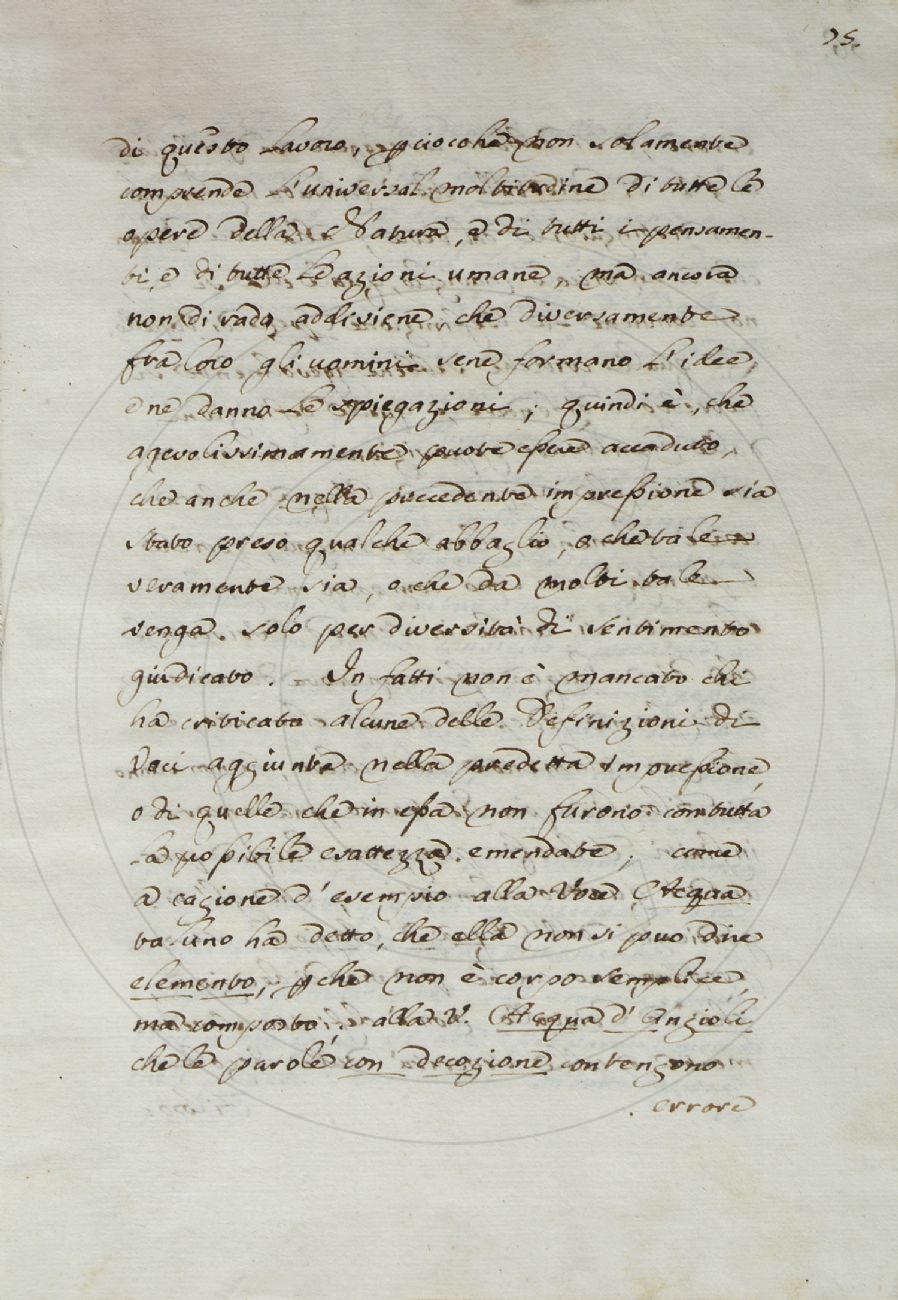 35.
di questo Lavoro, pciocchè non solamente
comprende l'universal moltitudine di tutte le
opere della Natura, e di tutti i pensamen-
ti, e di tutte le azioni umane, ma ancora
non di rado addiviene, che diversamente
fra loro gli uomini sene formano l'idee,
e ne danno le spiegazioni; quindi è, che
agevolissimamente puote essere accaduto,
che anche nella precedente impressione sia
stato preso qualche abbaglio, o che tale
veramente sia, o che da molti tale
venga solo per diversità di sentimento
giudicato. In fatti non è mancato chi
ha criticato alcune delle Definizioni di
Voci aggiunte nella predetta impressione,
o di quelle che in essa non furono con tutta
la possibile esattezza emendate; come
a cagione d'esempio alla Voce Acqua
taluno ha detto, che ella non si può dire
elemento, pchè non è corpo semplice,
ma composto: alla V. Acqua d'Angioli
che le parole con decozione contengono
errore